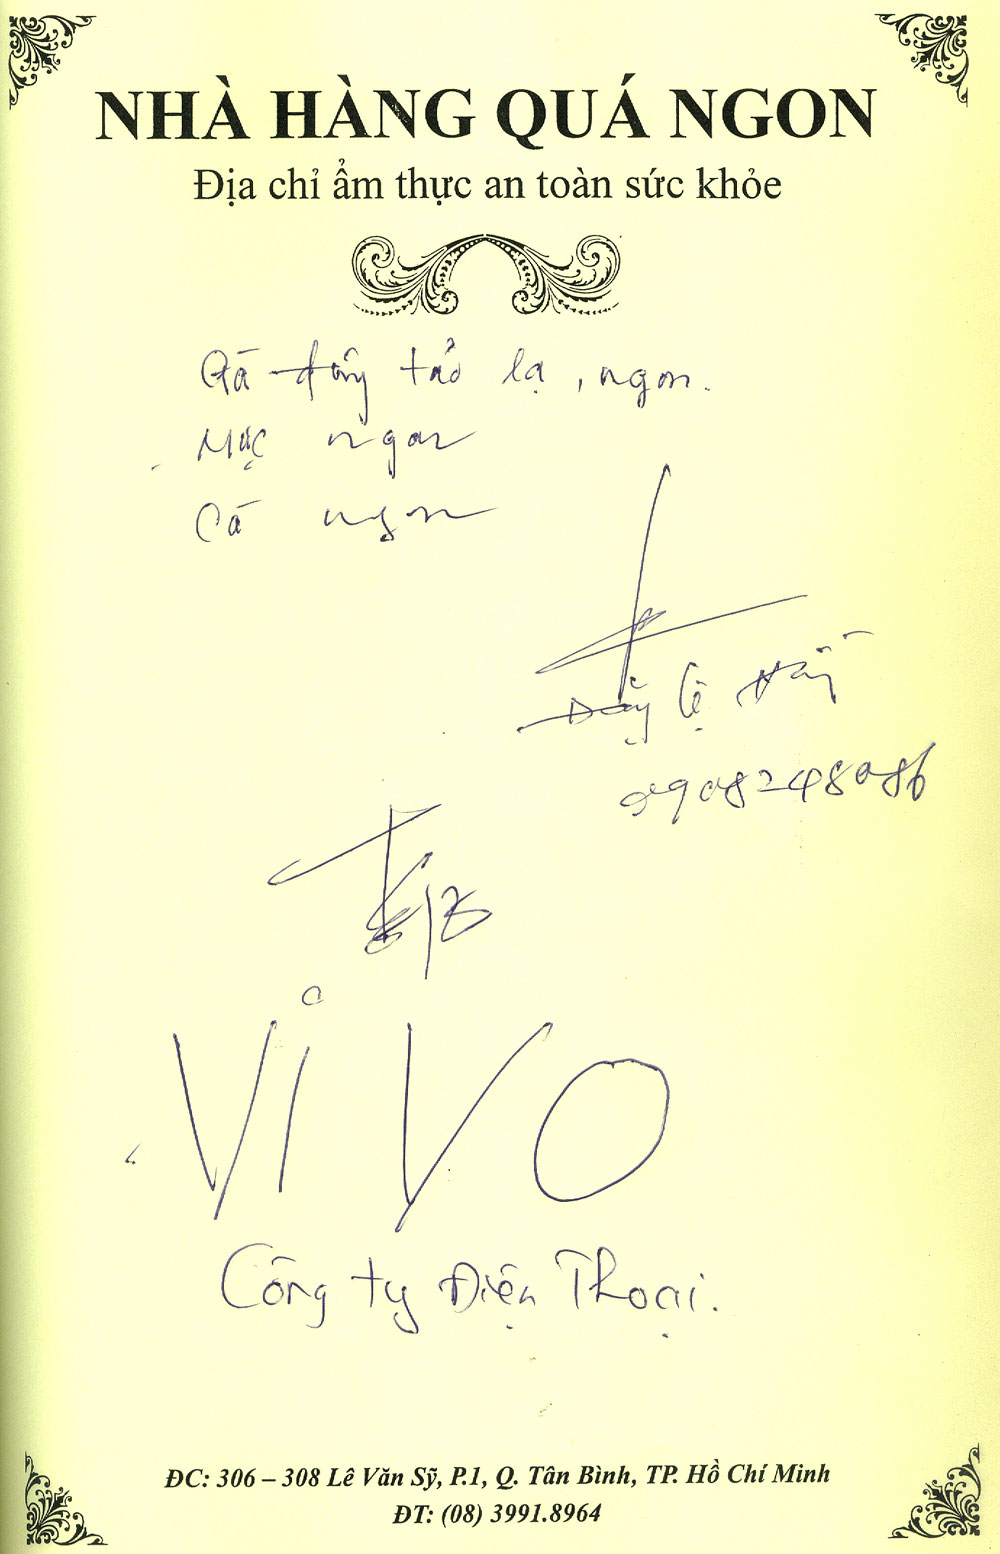 NHÀ HÀNG QUÁ NGON
Địa chỉ ẩm thực an toàn sức khỏe
Gà đông tảo lạ, ngon.
Mực ngon
Cá ngon
Đặng Lệ
0908248086
VIVO
Công ty Điện Thoại.
ĐC: 306 – 308 Lê Văn Sỹ, P.1, Q. Tân Bình, TP. Hồ Chí Minh
ĐT: (08) 3991.8964